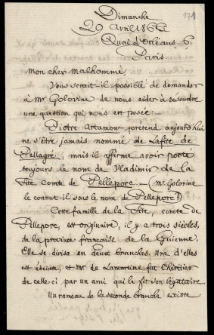 Dimanche
20 Avril 186
Quai d'Orléans 6
Paris
Mon cher Malhomme
Vous serait-il possible de demander
à Mr Golovine de nous aider à résoudre
une question qui nous est posée.
Victor prétend aujourd'hui
ne s'être jamais nommé de Lafite de
Pellagre, mais il affirme avoir porté
toujours le nom de Vladimir de la
Fite Comte de Pelleport. (Mr Golovine
le connaît-il sous le nom de Pelleport?)
Cette famille de la Fite, comte de
Pelleport est originaire, il y a trois siècles,
de la province française de la Guienne.
Elle se divisa en deux branches. L'une d'elles
est éteinte, et Mr de Lamartine fut l'héritier
de celui-ci par un ami qui le fit son légataire
Un rameau de la seconde branche